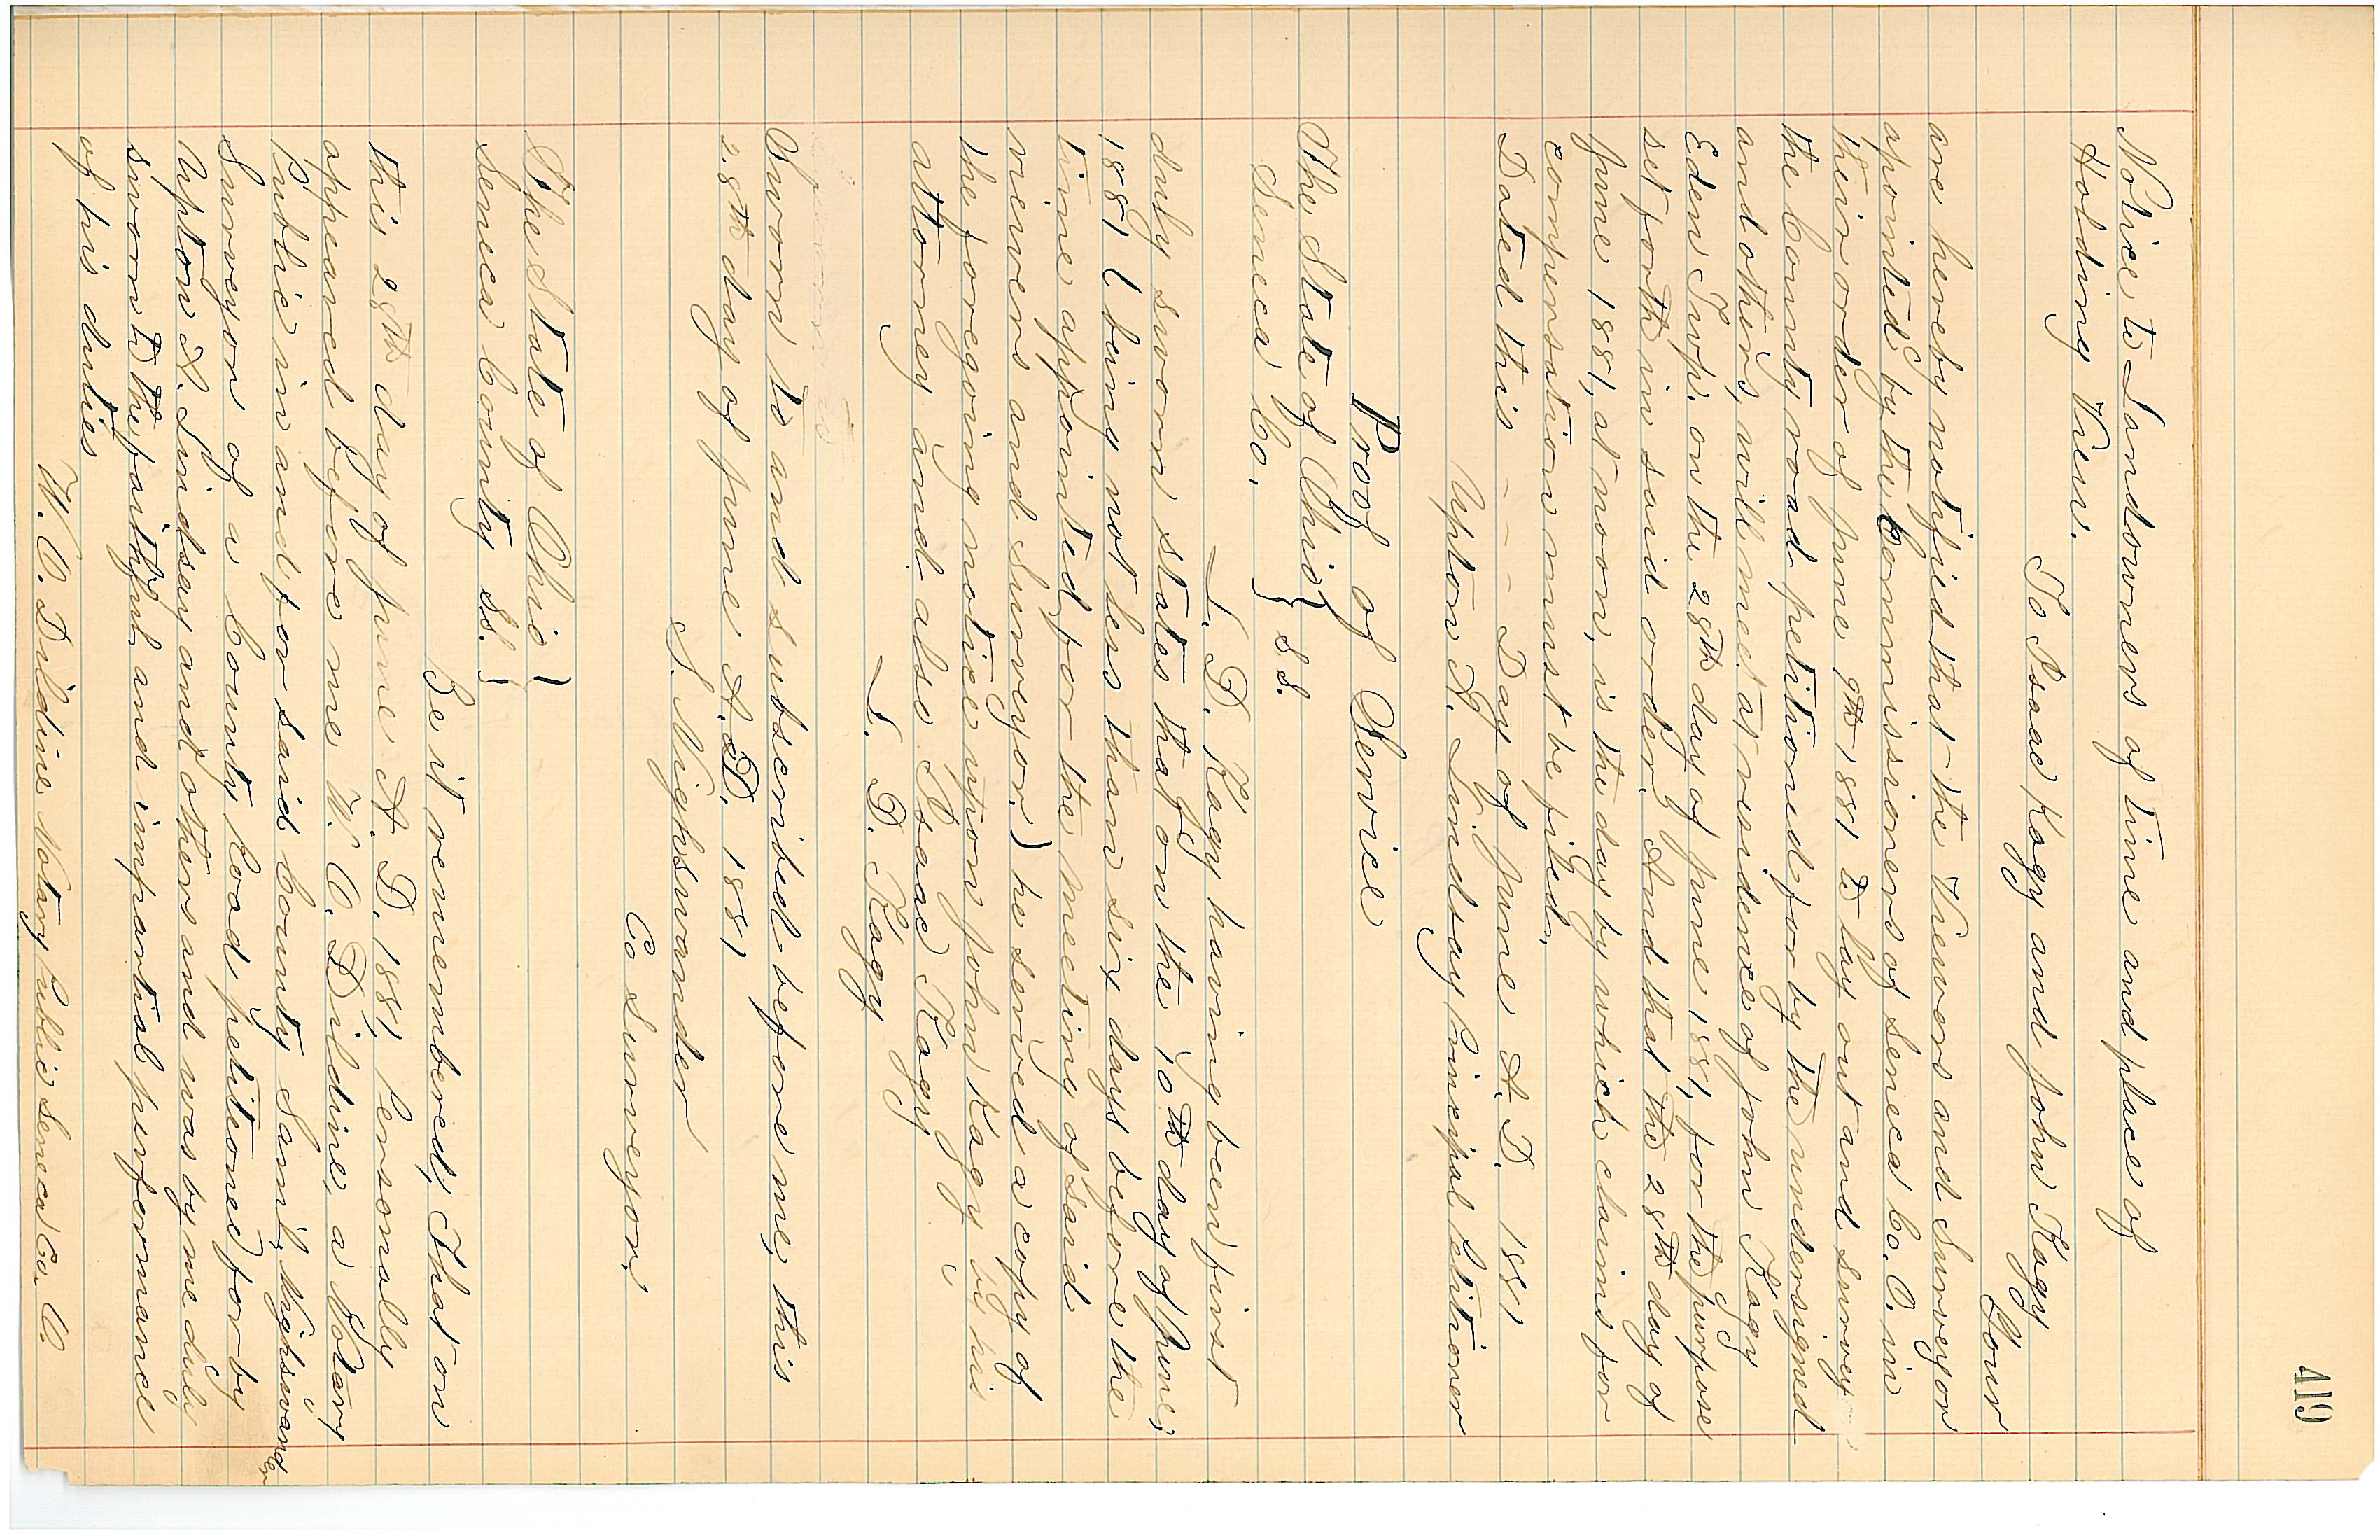 419
Notice to Landowners of time and place of
Holding View.
To Isaac Kagy and John Kagy
Your
are hereby notified that the Viewers and Surveyor
apointed by the Commissioners of Seneca Co. O. in
their order of June 9th 1881 to lay out and survey
the County road petitioned for by the undersigned
and others, will meet at residence of John Kagy
Eden Twp. on the 28th day of June 1881, for the purpose
set forth in said order. And that the 28th day of
June 1881, at noon, is the day by which claims for
compensation must be filed.
Dated this - - - Day of June A. D. 1881
Upton A. Lindsay Principal Petitioner
Proof of Service
The State of Ohio }
Seneca Co. } S S.
L. D. Kagy having been first
duly sworn states that on the 10th day of June,
1881 (being not less than six days before the
time appointed for the meeting of said
viewers and Surveyor) he served a copy of
the foregoing notice upon John Kagy by his
attorney and also Isaac Kagy
L. D. Kagy
Sworn to and subscribed before me, this
28th day of June A. D. 1881
S. Nighswander
Co Surveyor.
The State of Ohio }
Seneca County SS. }
Be it remembered, That on
this 28th day of June A. D. 1881, Personally
appeared before me W. O. Dildine, a Notary
Public in and for said County Saml. Nighswander
Surveyor of a County Road petitioned for by
Upton A. Lindsay and others and was by me duly
sworn to the faithful and impartial performance
of his duties
W. O. Dildine Notary Public Seneca Co. O.